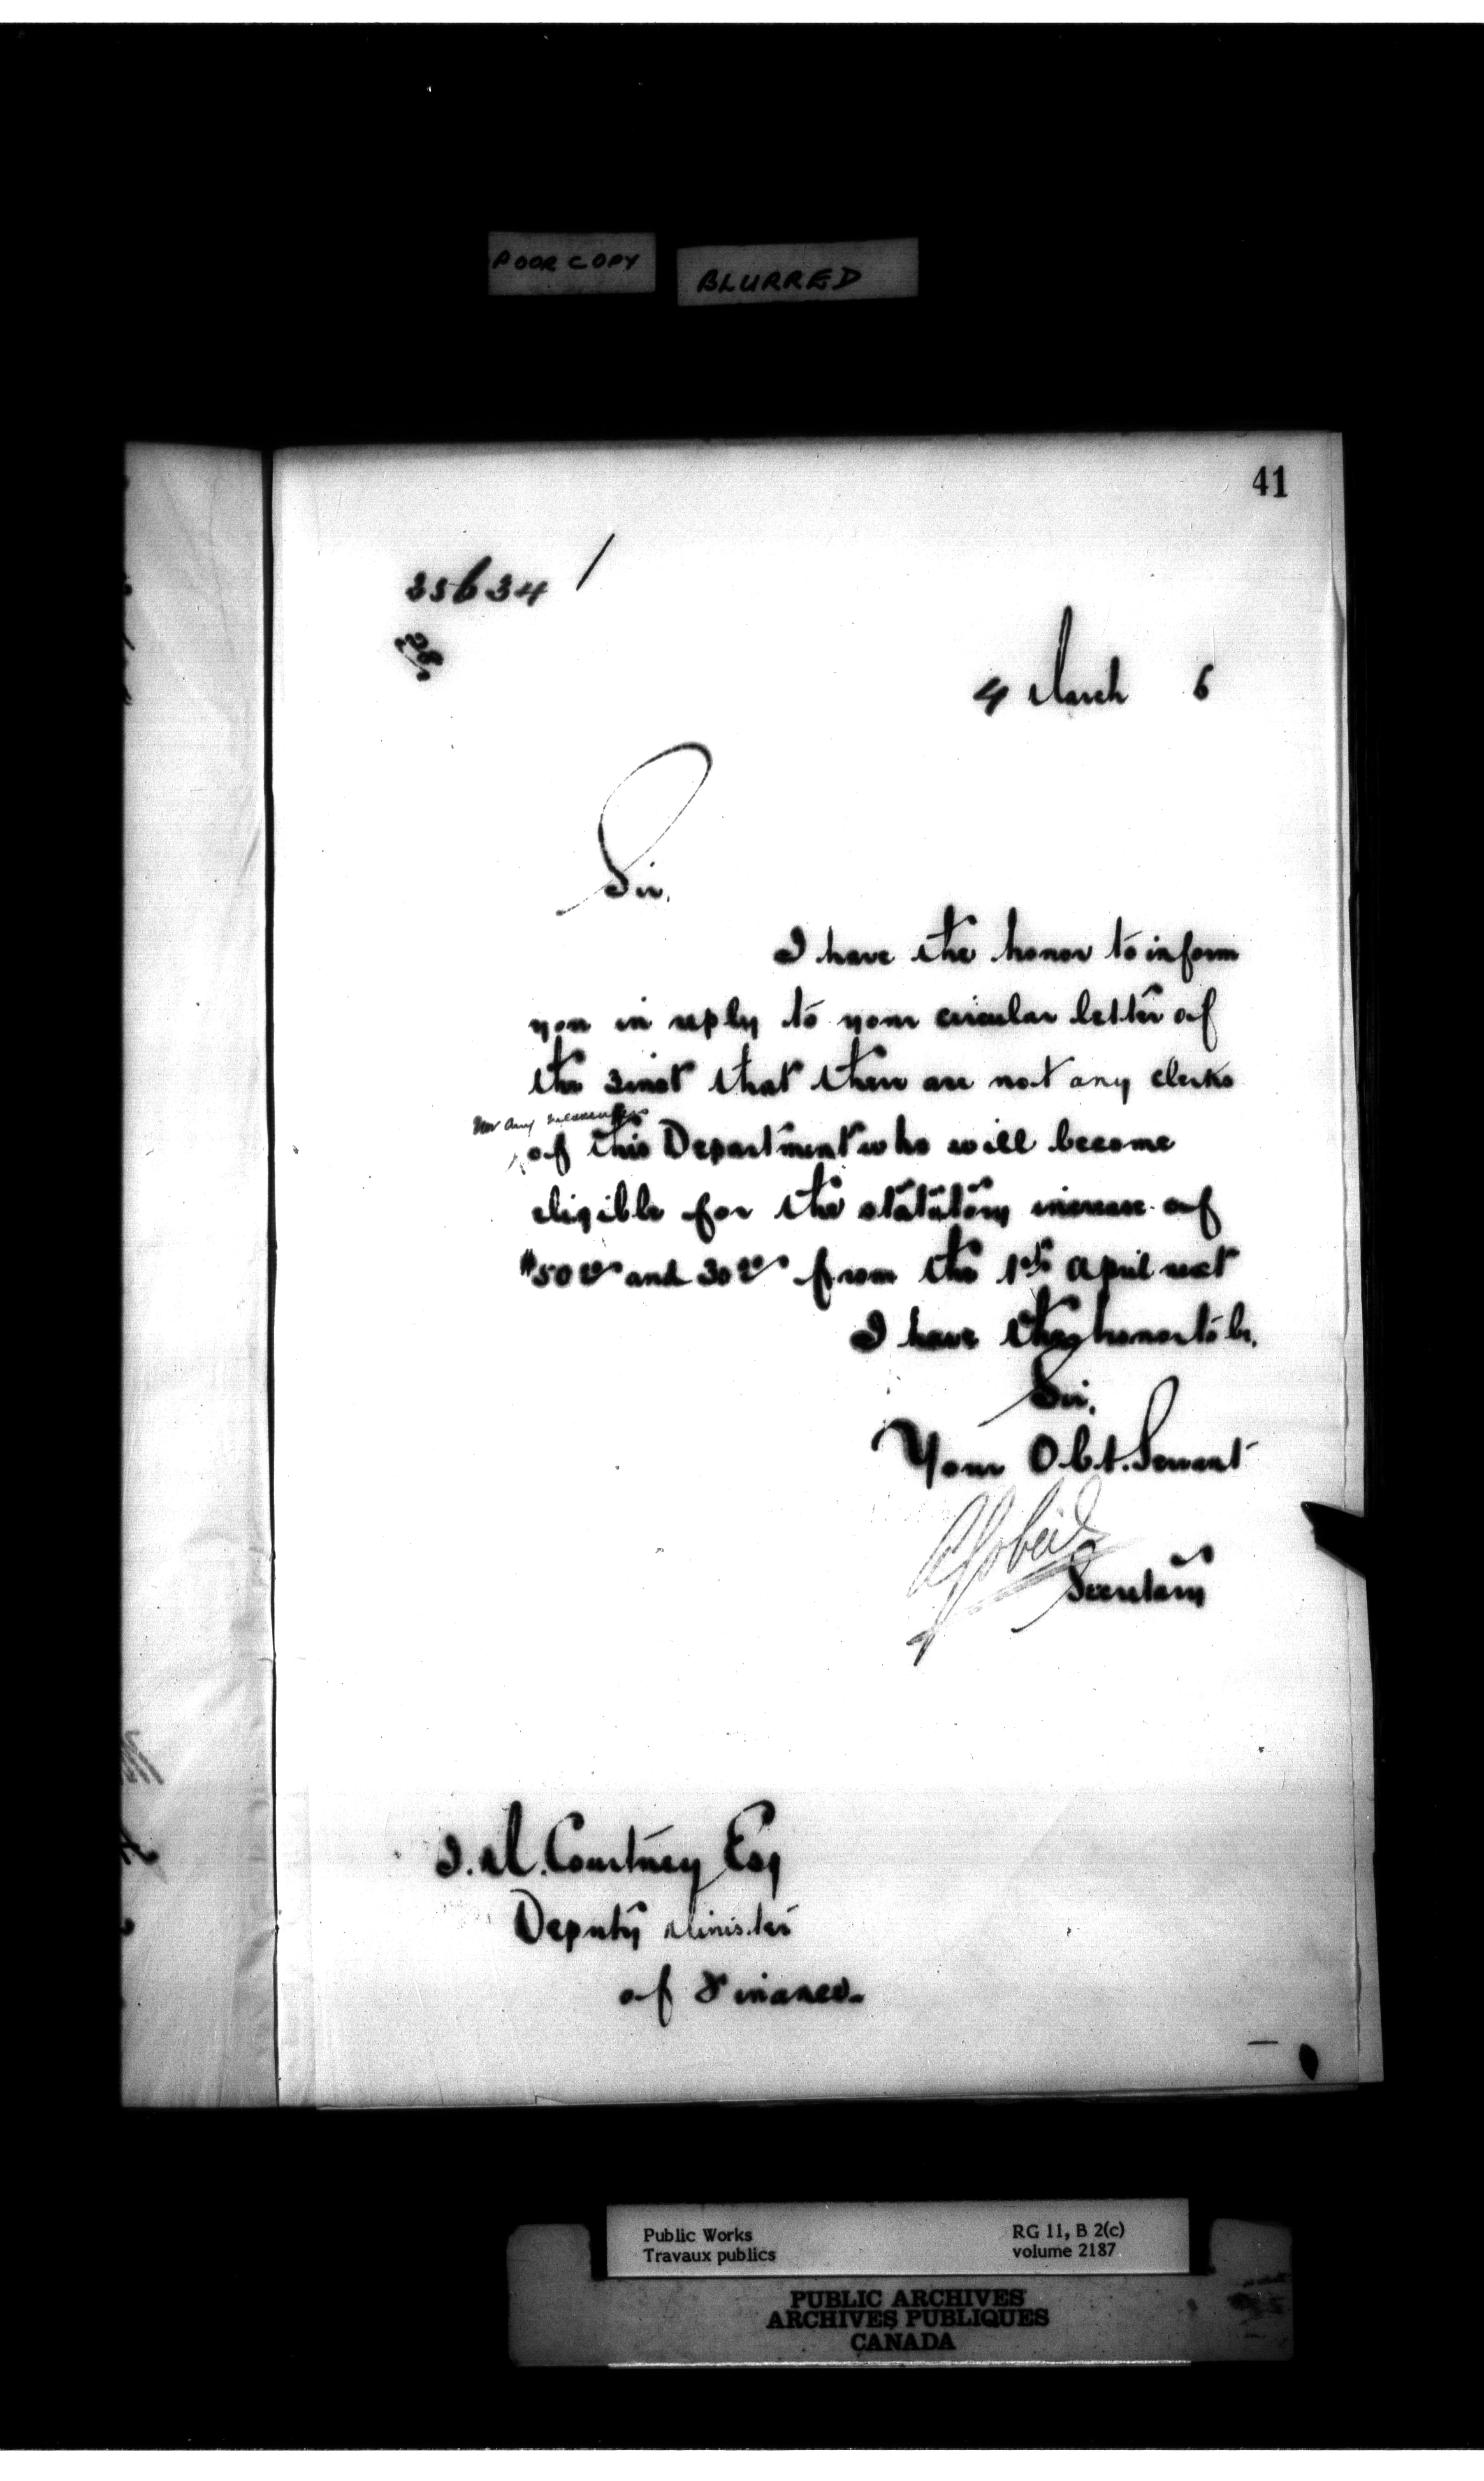 POOR COPY
BLURRED
41
35634 /
4 March 6
Sir,
I have the honor to inform
you in reply to your circular letter of
the 3 inst that there are not any clerks
nor any messengers
of this Department who will become
eligible for the statutory increase of
$50 00 and 30 00 from the 1st April next
I have the honor to be,
Sir,
Your Obt. Servant
A Gobeil
Secretary
J. M. Courtney Esq
Deputy Minister
of Finance.
Public Works
Travaux publics
RG 11, B 2(c)
volume 2187
PUBLIC ARCHIVES
ARCHIVES PUBLIQUES
CANADA